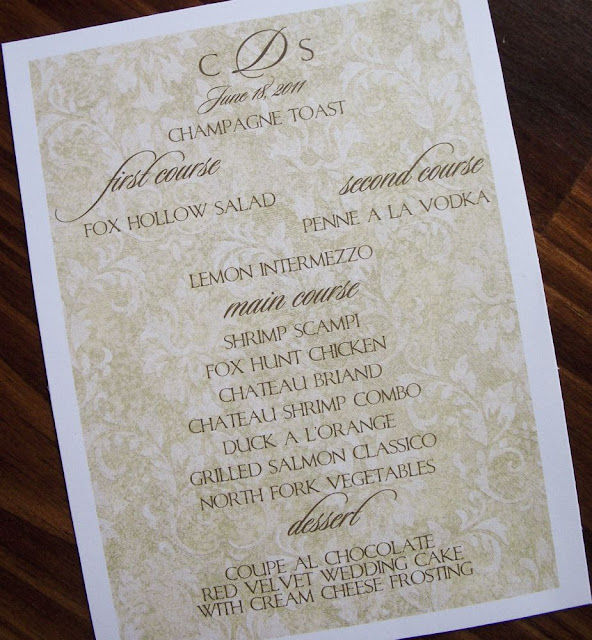 C D S
June 18, 2011
CHAMPAGNE TOAST
first course
FOX HOLLOW SALAD
second course
PENNE A LA VODKA
LEMON INTERMEZZO
main course
SHRIMP SCAMPI
FOX HUNT CHICKEN
CHATEAU BRIAND
CHATEAU SHRIMP COMBO
DUCK A L'ORANGE
GRILLED SALMON CLASSICO
NORTH FORK VEGETABLES
dessert
COUPE AL CHOCOLATE
RED VELVET WEDDING CAKE
WITH CREAM CHEESE FROSTING